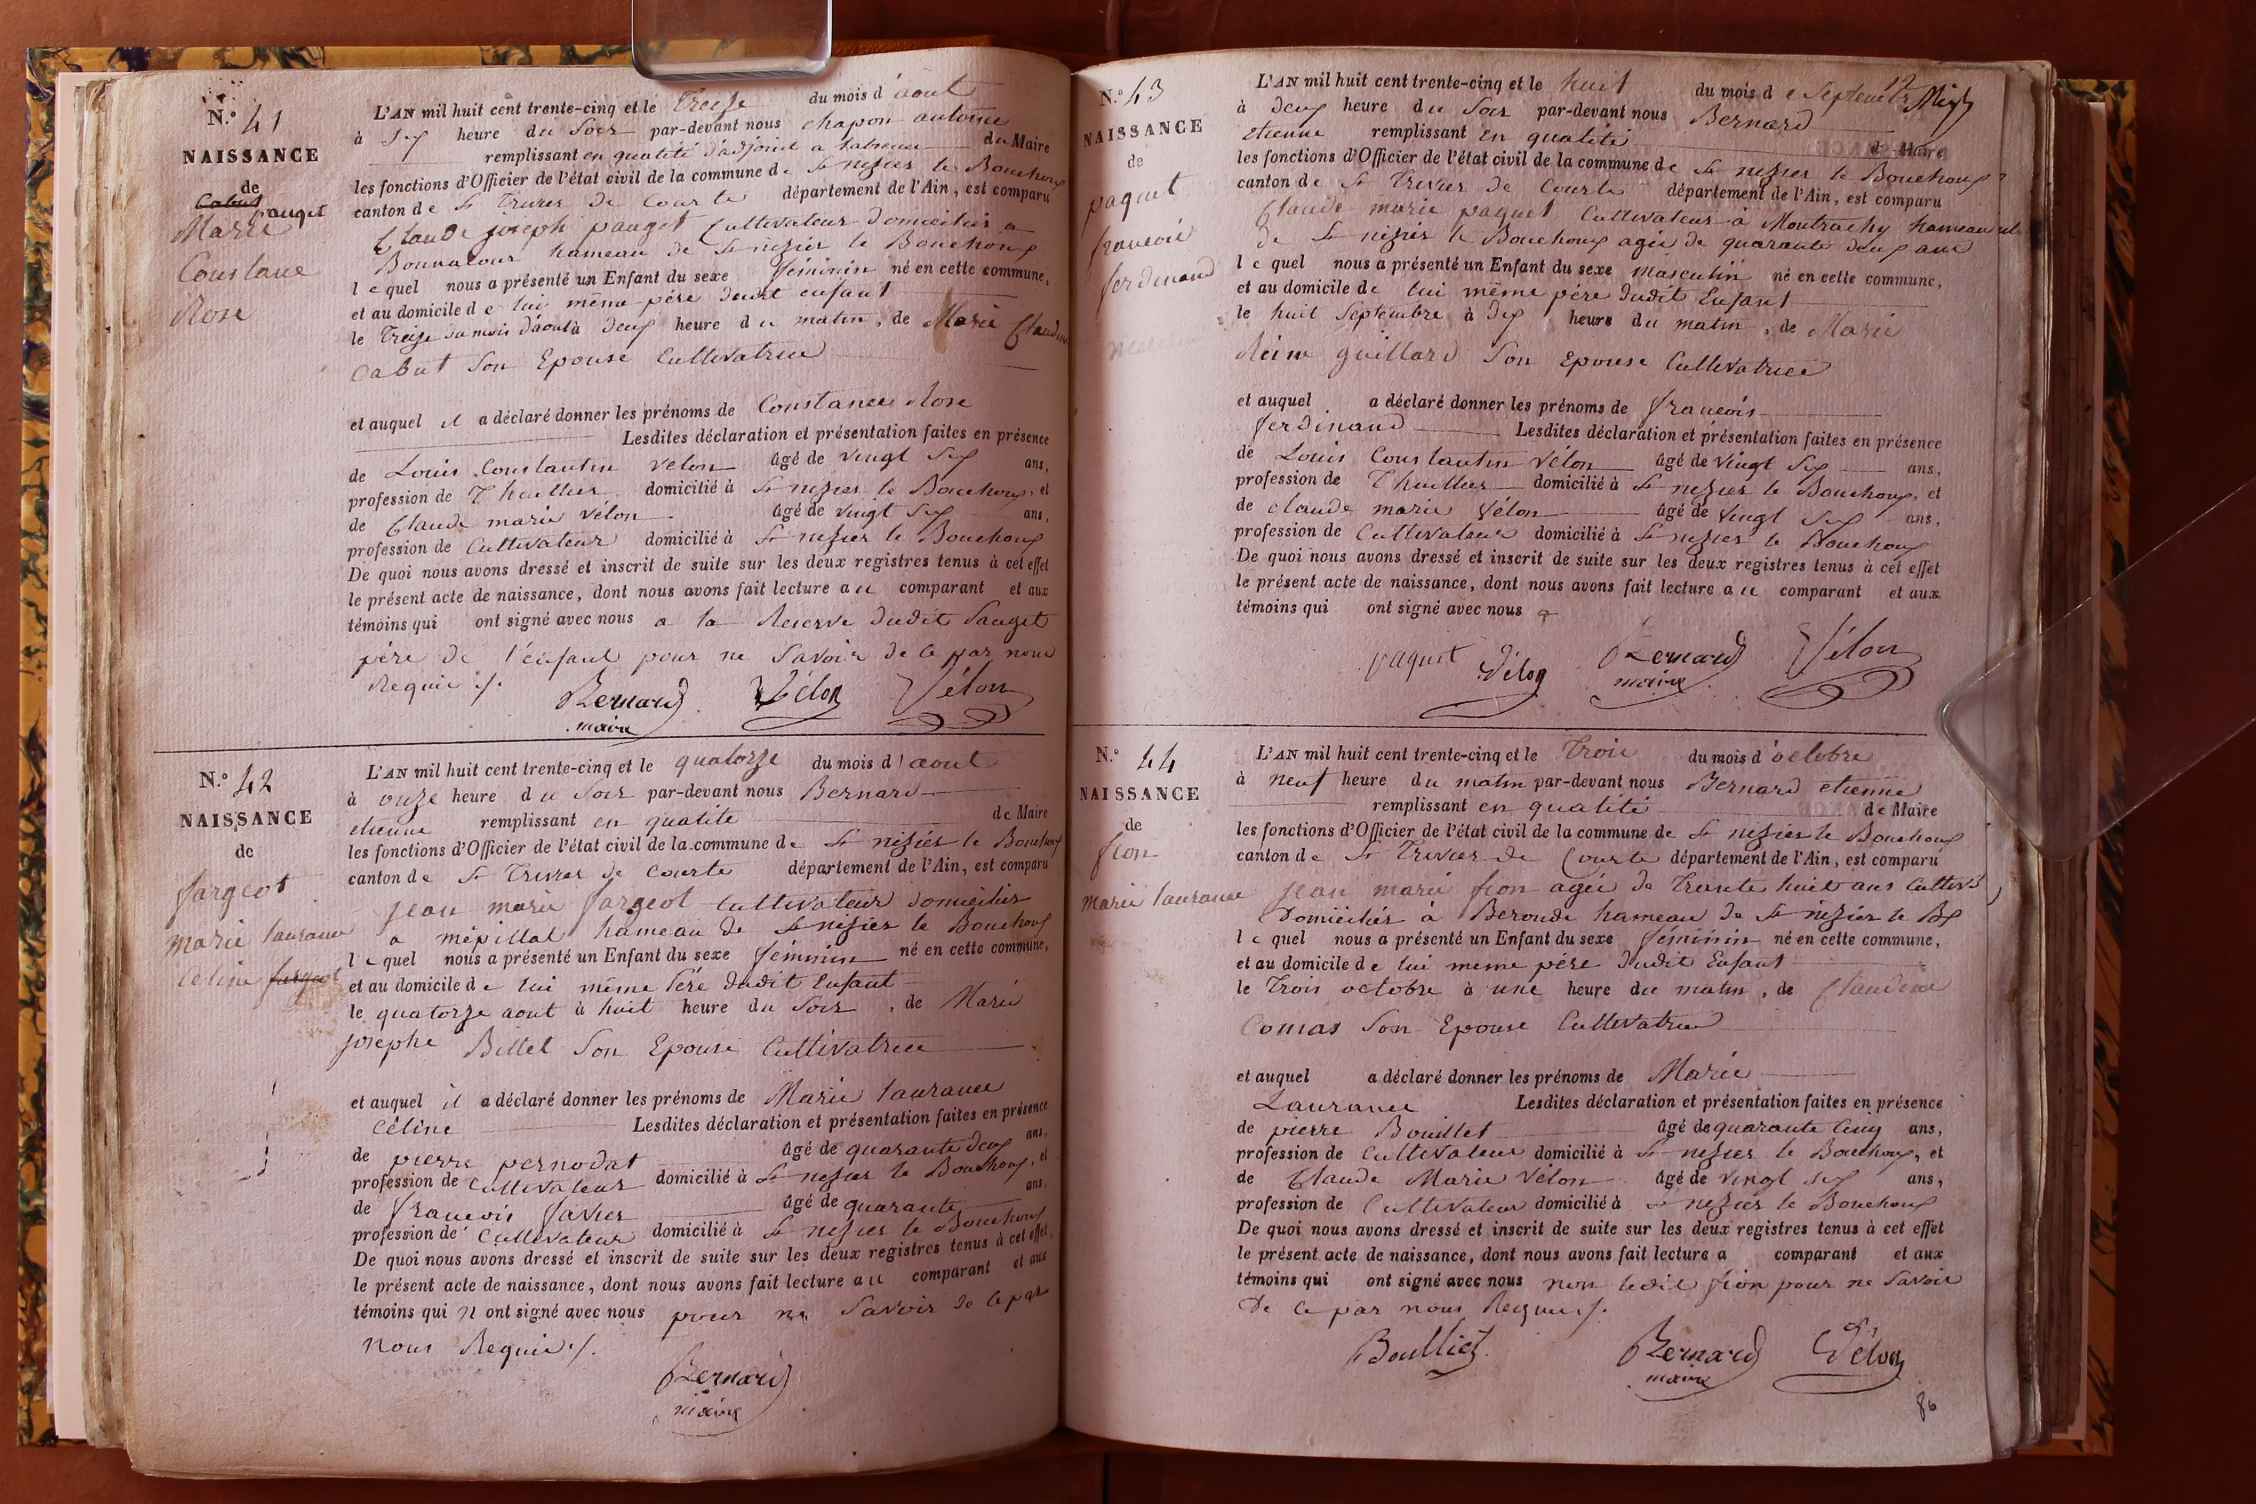 N.º 41
NAISSANCE
de
Cabut
pauget
Marie
Constance
Rose
L'AN mil huit cent trente-cinq et le treize du mois d'aout
à six heure du soir par-devant nous chapon antoine
remplissant en qualité d'adjoint a du Maire
les fonctions d'Officier de l'état civil de la commune de St nizier le Bouchoux
canton de St Trivier de Courte département de l'Ain, est comparu
Claude joseph pauget Cultivateur domicilié a
Bonnacour hameau de St nizier le Bouchoux
lequel nous a présenté un Enfant du sexe féminin né en cette commune,
et au domicile de lui même père dudit enfant
le treize du mois daout à deux heure du matin, de Marie Claudine
Cabut Son Epouse Cultivatrice
et auquel il a déclaré donner les prénoms de Constance Rose
Lesdites déclaration et présentation faites en présence
de Louis Constantin Vélon âgé de vingt six ans,
profession de Thuillier domicilié à St nizier le Bouchoux, et
de Claude marie Vélon âgé de vingt six ans,
profession de Cultivateur domicilié à St nizier le Bouchoux
De quoi nous avons dressé et inscrit de suite sur les deux registres tenus à cet effet
le présent acte de naissance, dont nous avons fait lecture au comparant et aux
témoins qui ont signé avec nous a la Reserve dudit Pauget
père de l'enfant pour ne Savoir de ce par nous
Requis ./.
Bernard Vélon Vélon
maire
N.º 42
NAISSANCE
de
fargeot
marie laurance
Céline fargeot
L'AN mil huit cent trente-cinq et le quatorze du mois d'aout
à onze heure du Soir par-devant nous Bernard
etienne remplissant en qualité de Maire
les fonctions d'Officier de l'état civil de la commune de St nizier le Bouchoux
canton de St Trivier de Courte département de l'Ain, est comparu
Jean marie fargeot Cultivateur domicilié
a mépillat hameau de St nizier le Bouchoux
lequel nous a présenté un Enfant du sexe féminin né en cette commune,
et au domicile de lui même Père dudit Enfant
le quatorze aout à huit heure du Soir, de Marie
josephe Billet Son Epouse Cultivatrice
et auquel il a déclaré donner les prénoms de Marie laurance
Céline Lesdites déclaration et présentation faites en présence
de pierre pernodat âgé de quarante deux ans,
profession de Cultivateur domicilié à St nizier le Bouchoux, et
de françois favier âgé de quarante ans,
profession de Cultivateur domicilié à St nizier le Bouchoux
De quoi nous avons dressé et inscrit de suite sur les deux registres tenus à cet effet,
le présent acte de naissance, dont nous avons fait lecture au comparant et aux
témoins qui n ont signé avec nous pour ne Savoir de ce par
nous Requis ./.
Bernard
maire
N.º 43
NAISSANCE
de
paquet
françois
ferdinand
L'AN mil huit cent trente-cinq et le huit du mois de Septembre
à deux heure du Soir par-devant nous Bernard
etienne remplissant en qualité d Maire
les fonctions d'Officier de l'état civil de la commune de St nizier le Bouchoux
canton de St Trivier de Courte département de l'Ain, est comparu
Claude marie paquet Cultivateur à Montrachy hameau
de St nizier le Bouchoux agée de quarante deux ans
lequel nous a présenté un Enfant du sexe masculin né en cette commune,
et au domicile de lui même père dudit Enfant
le huit Septembre à dix heure du matin, de Marie
Reine guillard Son Epouse Cultivatrice
et auquel a déclaré donner les prénoms de françois
ferdinand Lesdites déclaration et présentation faites en présence
de Louis Constantin Vélon âgé de vingt six ans,
profession de Thuillier domicilié à St nizier le Bouchoux, et
de claude marie Vélon âgé de vingt six ans,
profession de Cultivateur domicilié à St nizier le Bouchoux
De quoi nous avons dressé et inscrit de suite sur les deux registres tenus à cet effet
le présent acte de naissance, dont nous avons fait lecture au comparant et aux
témoins qui ont signé avec nous
paquet Vélon Bernard Vélon
maire
N.º 44
NAISSANCE
de
fion
marie laurance
L'AN mil huit cent trente-cinq et le trois du mois d'octobre
à neuf heure du matin par-devant nous Bernard etienne
remplissant en qualité de Maire
les fonctions d'Officier de l'état civil de la commune de St nizier le Bouchoux
canton de St Trivier de Courte département de l'Ain, est comparu
Jean marie fion agée de trante huit ans Cultiv
Domicilié à Beronde hameau de St nizier le Bx
lequel nous a présenté un Enfant du sexe féminin né en cette commune,
et au domicile de lui meme père dudit Enfant
le trois octobre à une heure du matin, de Claudine
Comas Son Epouse Cultivatrice
et auquel a déclaré donner les prénoms de Marie
Laurance Lesdites déclaration et présentation faites en présence
de pierre Bouillet âgé de quarante cinq ans,
profession de Cultivateur domicilié à St nizier le Bouchoux, et
de Claude Marie Vélon âgé de vingt six ans,
profession de Cultivateur domicilié à St nizier le Bouchoux
De quoi nous avons dressé et inscrit de suite sur les deux registres tenus à cet effet
le présent acte de naissance, dont nous avons fait lecture a comparant et aux
témoins qui ont signé avec nous non ledit fion pour ne Savoir
De ce par nous Requis ./.
Boulliet Bernard Vélon
maire
86